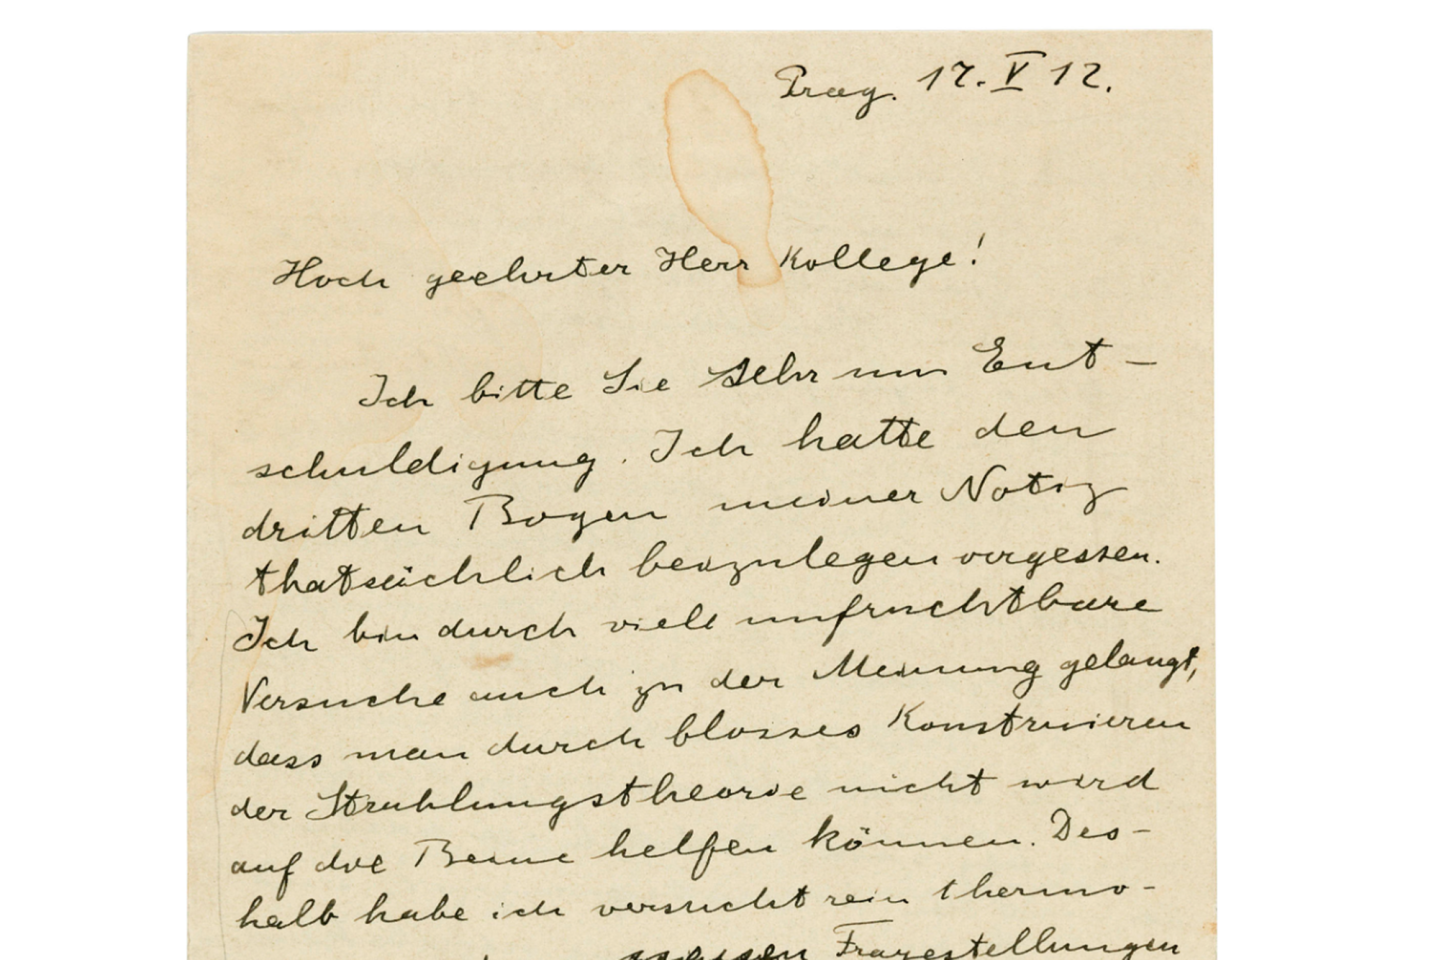 Prag. 17. V 12.
Hoch geehrter Herr Kollege!
Ich bitte Sie sehr um Ent-
schuldigung. Ich hatte den
dritten Bogen meiner Notiz
thatsächlich beizulegen vergessen.
Ich bin durch viele unfruchtbare
Versuche auch zu der Meinung gelangt,
dass man durch blosses Konstruieren
der Strahlungstheorie nicht wird
auf die Beine helfen können. Des-
halb habe ich versucht rein thermo-
Fragestellungen